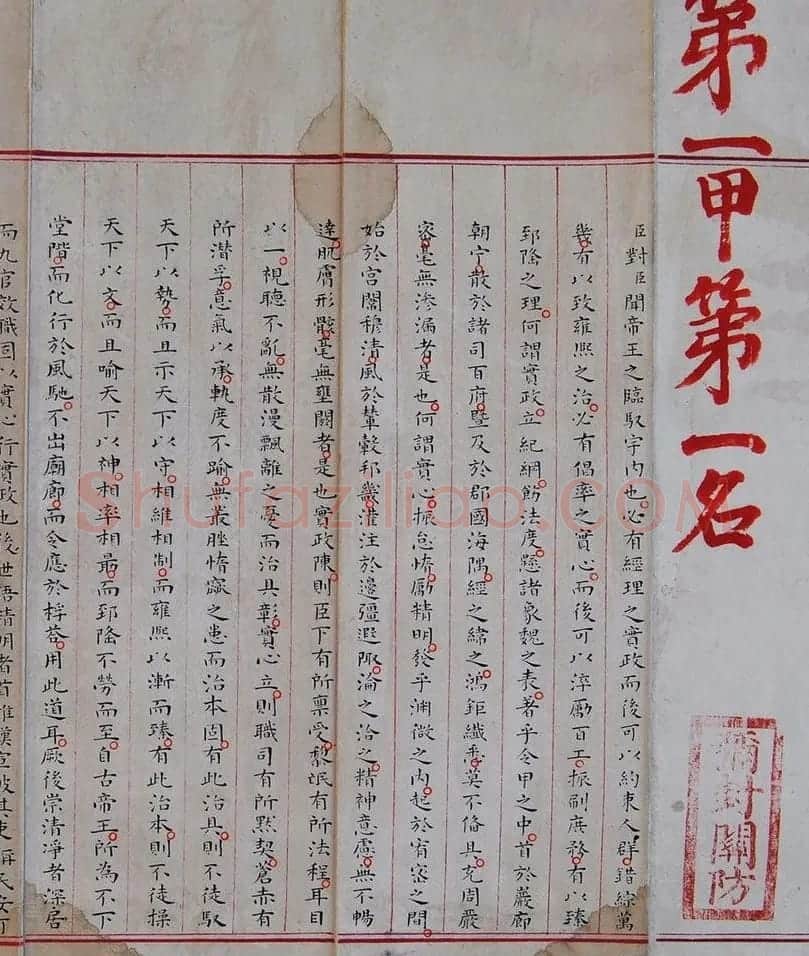 第一甲第一名
彌封關防
臣對臣聞帝王之臨馭宇內也必有經理之實政而後可以約束人群錯綜萬
幾有以致雍熙之治必有倡率之實心而後可以淬勵百工振刷庶務有以臻
郅隆之理何謂實政立紀綱飭法度懸諸象魏之表著乎令甲之中首於巖廊
朝宁散於諸司百府暨及於郡國海隅經之緯之鴻鉅纖悉莫不備具充周嚴
密毫無滲漏者是也何謂實心振怠惰勵精明發乎淵微之內起於宥密之間
始於宮闈穆清風於輦轂邦畿灌注於邊疆遐陬淪之洽之精神意慮無不暢
達肌膚形骸毫無壅閼者是也實政陳則臣下有所稟受黎氓有所法程耳目
以一視聽不亂無散漫飄離之憂而治具彰實心立則職司有所默契蒼赤有
所潛孚意氣以承軌度不踰無叢脞惰窳之患而治本固有此治具則不徒馭
天下以勢而且示天下以守相維相制而雍熙以漸而臻有此治本則不徒操
天下以文而且喻天下以神相率相最而郅隆不勞而至自古帝王所為不下
堂階而化行於風馳不出廟廊而令應於桴荅用此道耳厥後崇清淨者深居
而九官效職固以實心行實政也後世語精明者首推漢宣彼其吏稱民安可
Shufaziliao.COM